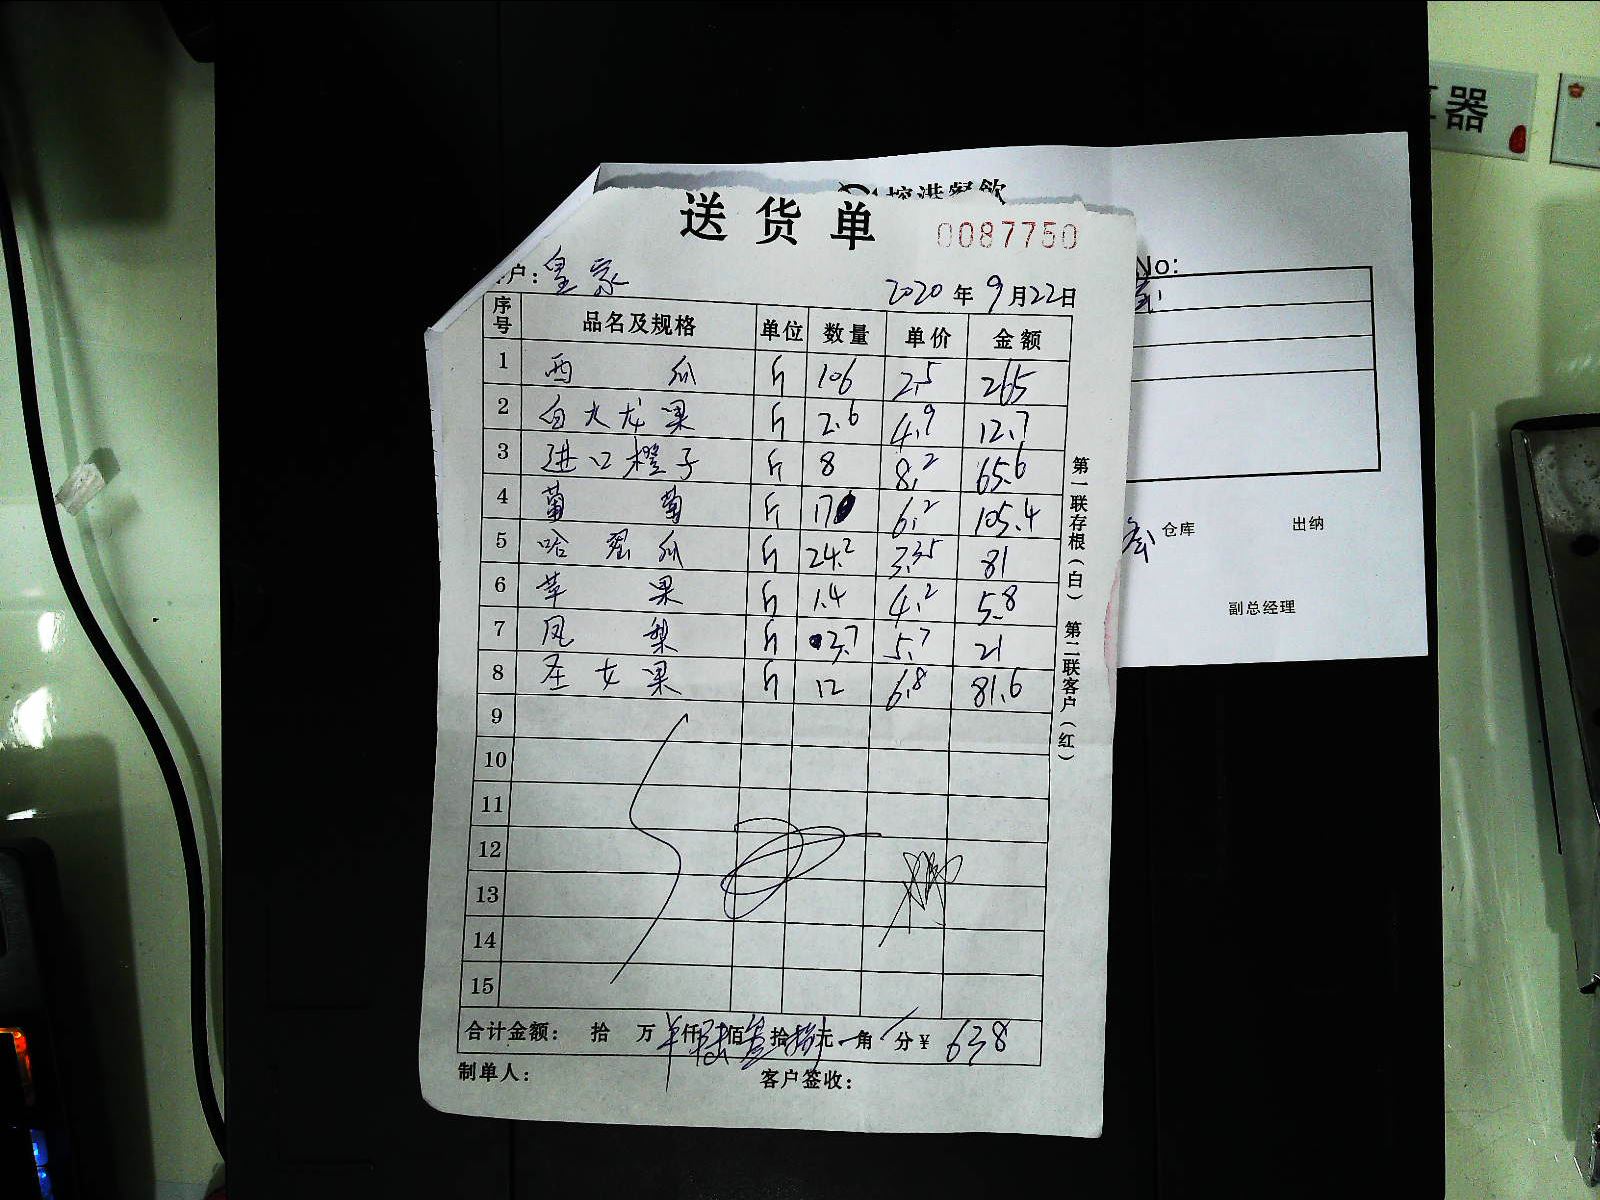 器
控港餐飲
送货单 0087750
户：皇家
2020年9月22日
No:
序号 品名及规格 单位 数量 单价 金额
1 西瓜 斤 106 2.5 265
2 白火龙果 斤 2.6 4.9 12.7
3 进口橙子 斤 8 8.2 65.6
4 葡萄 斤 17 6.2 105.4
5 哈密瓜 斤 24.2 3.35 81
6 苹果 斤 1.4 4.2 5.8
7 凤梨 斤 3.7 5.7 21
8 圣女果 斤 12 6.8 81.6
9
10
11
12
13
14
15
合计金额： 拾 万 仟 佰 拾 元 角 分 ¥ 638
制单人： 客户签收：
第一联存根（白） 第二联客户（红）
仓库 出纳
副总经理